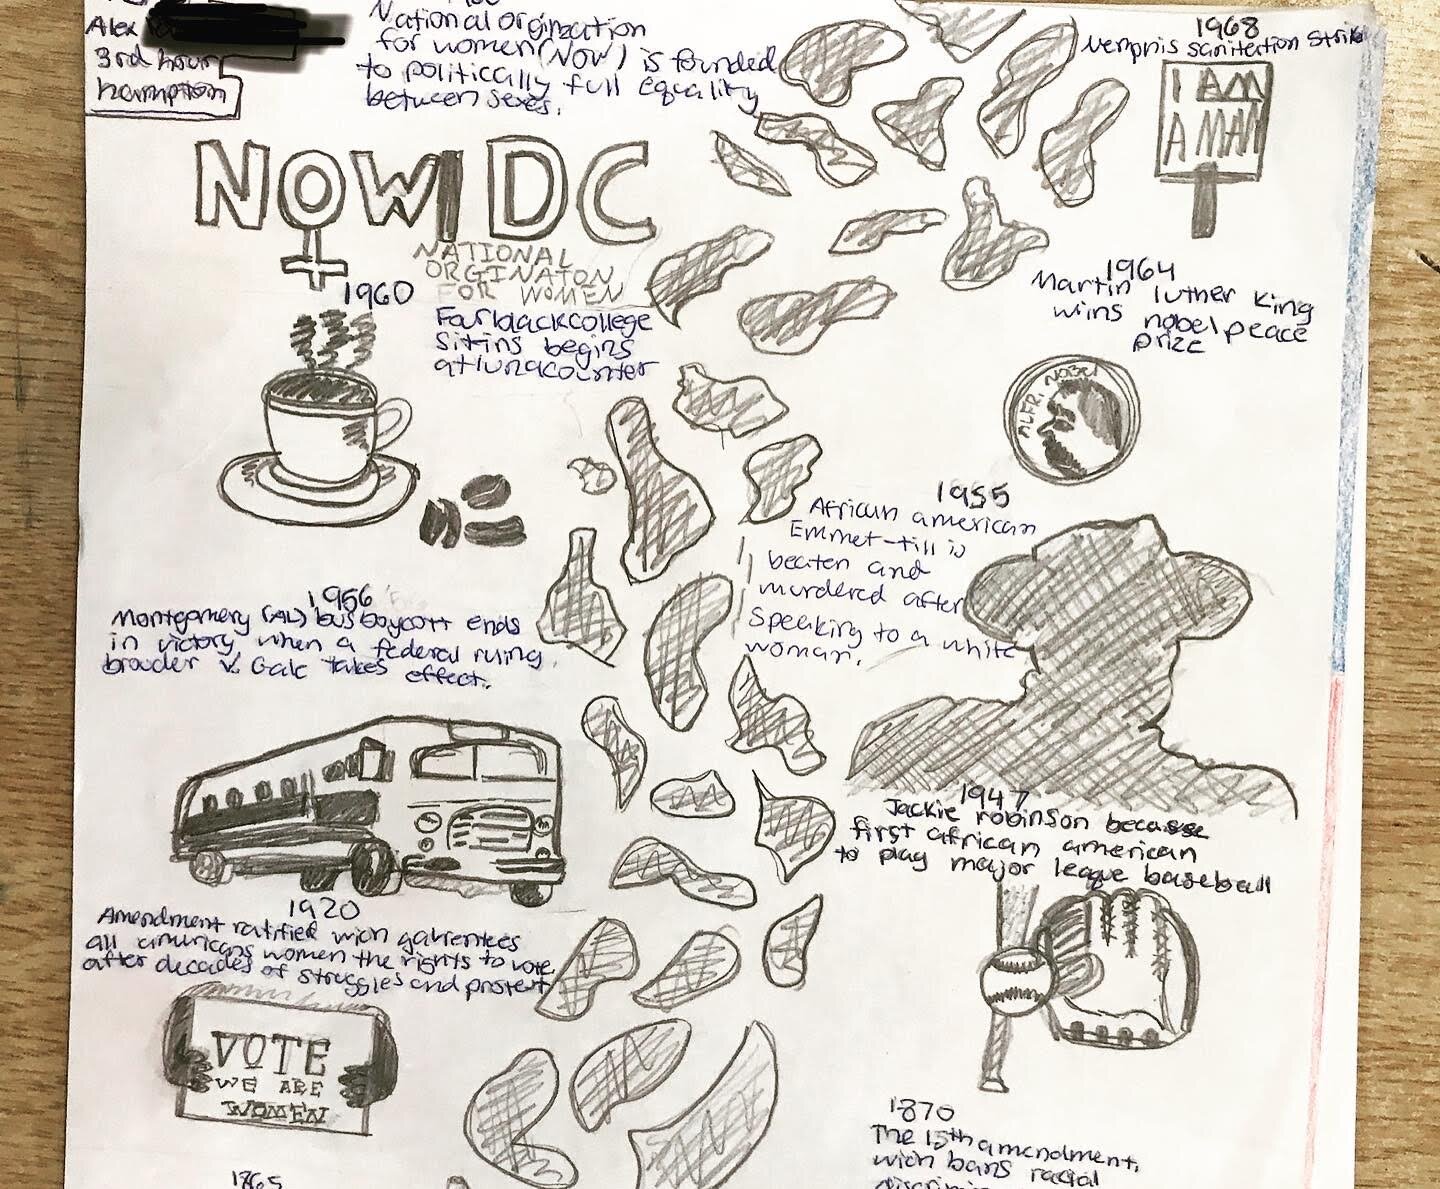 Alex
3rd hour
hamption
National orginzation
for women (NOW) is founded
to politically full equality
between sexes.
1968
Memphis sanitertion strike
I AM
A MAN
NOW DC
NATIONAL
ORGINATON
FOR WOMEN
1964
Martin luther king
wins nobel peace
prize
ALFR. NOBEL
1960
Four black college
sitins begins
at
1955
African american
Emmet-till is
beaten and
murdered after
Speaking to a white
woman.
1956
Montgomery (AL) bus boycott ends
in victory when a federal ruling.
browder v. Gale takes effect.
1947
Jackie robinson because
first african american
to play major league baseball
1920
Amendment ratified wich gahrentees
all americans women the rights to vote
after decades of struggles and protest
VOTE
WE ARE
WOMEN
1870
The 15th amendment,
wich bans racial
1865